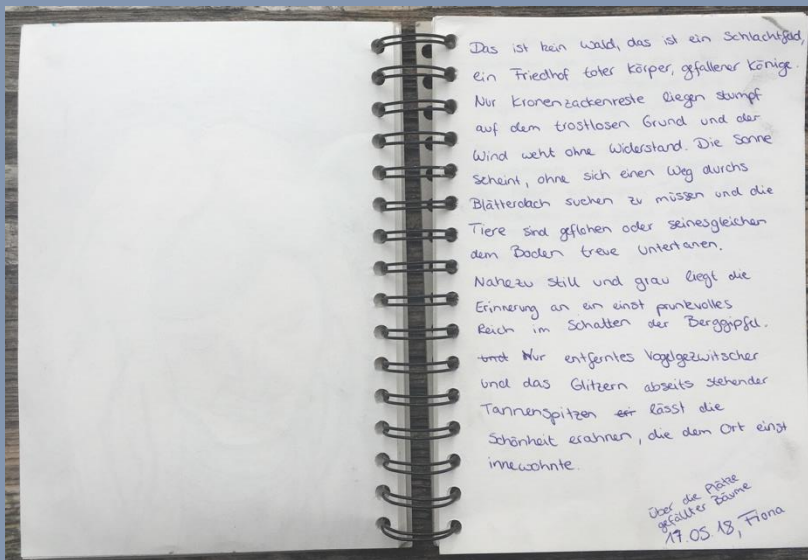 Das ist kein Wald, das ist ein Schlachtfeld,
ein Friedhof toter Körper, gefallener Könige.
Nur Kronenzackenreste liegen stumpf
auf dem trostlosen Grund und der
Wind weht ohne Widerstand. Die Sonne
scheint, ohne sich einen Weg durchs
Blätterdach suchen zu müssen und die
Tiere sind geflohen oder seinesgleichen
dem Boden treue Untertanen.
Nahezu still und grau liegt die
Erinnerung an ein einst prunkvolles
Reich im Schatten der Berggipfel.
und Nur entferntes Vogelgezwitscher
und das Glitzern abseits stehender
Tannenspitzen lässt die
Schönheit erahnen, die dem Ort einst
innewohnte.
Über die Plätze
gefällter Bäume
17.05.18, Fiona